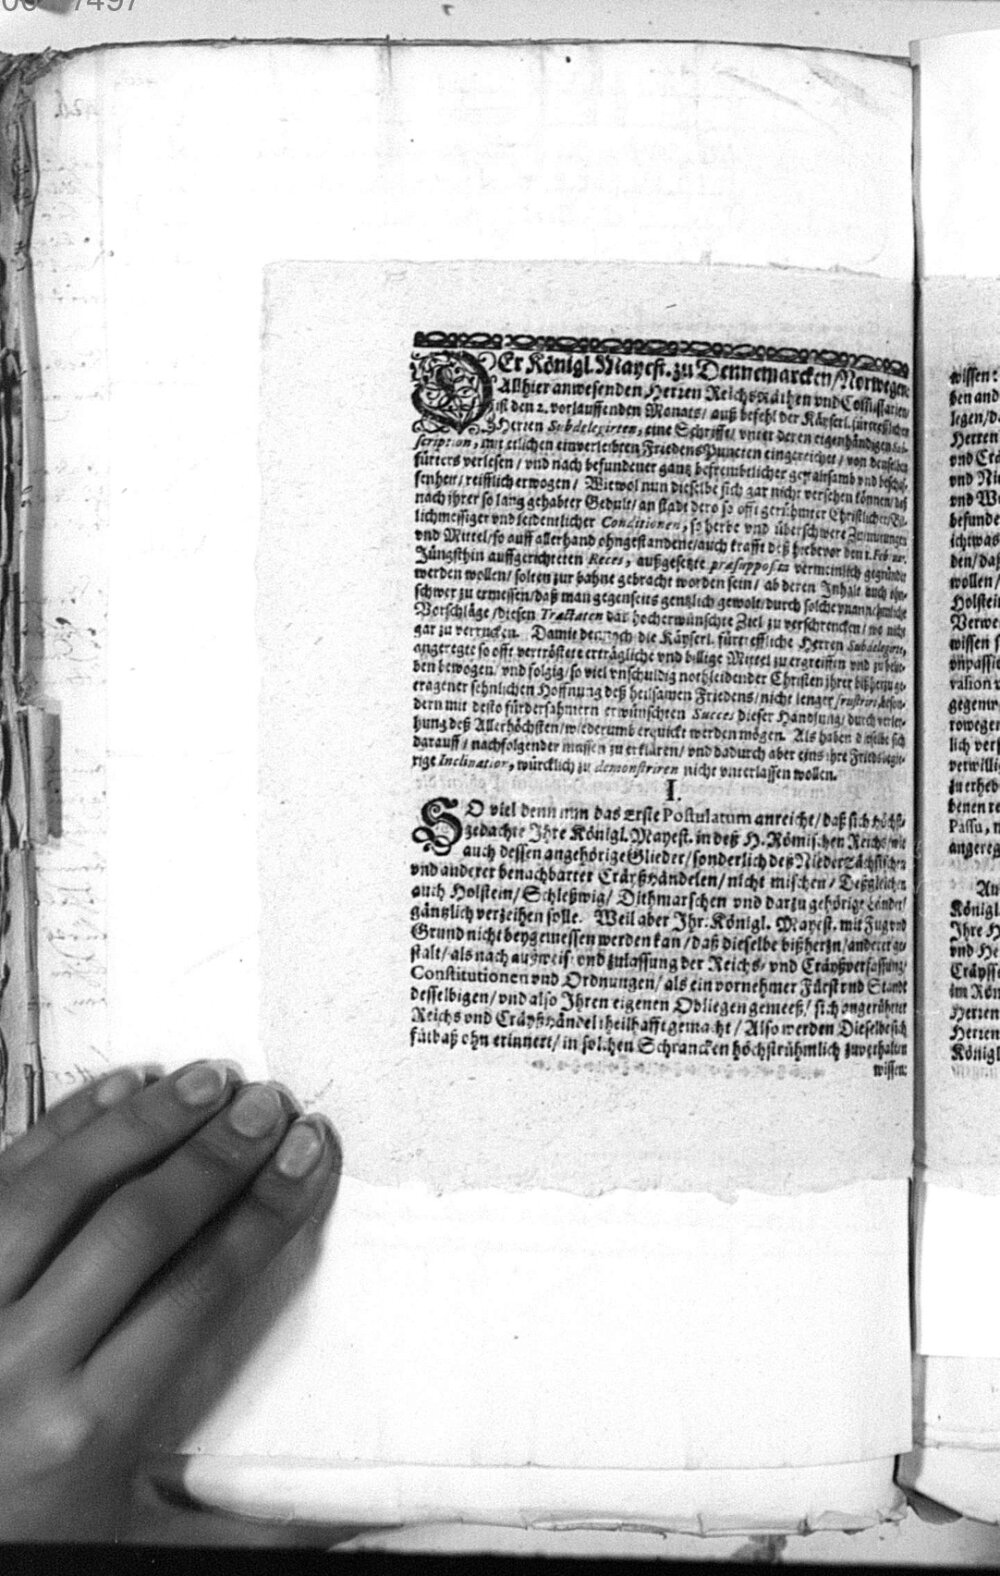 DEr Königl. Mayest. zu Dennemarcken/Norwegen
Allhier anwesenden Herren Reichs Räthen vnd Commissarien
ist den 2. vorlauffenden Monats/ auß befehl der Käyserl. fürtrefflichen
Herren Subdelegirten, eine Schrifft/ vnter deren eigenhändigen Sub-
scription, mit etlichen einverleibten Friedens Puncten eingereichet/ von denselben
fürters verlesen / vnd nach befundener gantz befrembtlicher gewaltsamb vnd beschaf-
fenheit/ reifflich erwogen / Wiewol nun dieselbe sich gar nicht versehen können/ daß
nach jhrer so lang gehabter Gedult/ an stadt dero so offt gerühmter Christlicher/
lichmessiger vnd leidentlicher Conditionen, so herbe vnd überschwere Zumutungen
vnd Mittel/ so auff allerhand ohngestandene/ auch krafft deß hiebevor den 1. Februar.
Jüngsthin auffgerichteten Reces, außgesetzte præsupposita vermeintlich gegründet
werden wollen/ solten zur bahne gebracht worden sein / ab deren Inhalt auch ohn-
schwer zu ermessen/ daß man gegenseits gentzlich gewolt/ durch solche vnannehmliche
Vorschläge / diesen Tractaten das hocherwünschte Ziel zu verschrencken/ wo nicht
gar zu verrucken. Damit dennoch die Käyserl. fürtreffliche Herren Subdelegirte,
angeregte so offt vertröstete erträgliche vnd billige Mittel zu ergreiffen vnd zu belie-
ben bewogen/ vnd folgig/ so viel vnschuldig nothleidender Christen jhrer bißherzuge-
tragener sehnlichen Hoffnung deß heilsamen Friedens/ nicht lenger/ frustrirt, beson-
dern mit desto fürdersahmern erwünschten Succes dieser Handlung/ durch verlei-
hung deß Allerhöchsten/ wiederumb erquickt werden mögen. Als haben dieselbe sich
darauff / nachfolgender massen zu erklären/ vnd dadurch aber eins ihre Friedbegie-
rige Inclination, würcklich zu demonstriren nicht vnterlassen wollen.
I.
SO viel denn nun das Erste Postulatum anreicht/ daß sich höchst-
gedachte Ihre Königl. Mayest. in deß H. Römischen Reichs/ wie
auch dessen angehörige Glieder/ sonderlich deß Nieder Sächsischen
vnd anderer benachbarter Cräyß Händelen/ nicht mischen / Deßgleichen
auch Holstein/ Schleßwig/ Dithmarschen vnd darzu gehörige Länder/
gäntzlich verzeihen solle. Weil aber Ihr. Königl. Mayest. mit Fug vnd
Grund nicht beygemessen werden kan / daß dieselbe bißherzu/ anderer ge-
stalt/ als nach außweis- vnd zulassung der Reichs- vnd Cräyßverfassung/
Constitutionen vnd Ordnungen/ als ein vornehmer Fürst vnd Standt
desselbigen/ vnd also Ihren eigenen Obliegen gemeeß/ sich angerührter
Reichs vnd Cräyß Händel theilhafft gemacht / Also werden Dieselbe sich
fürbaß ohn erinnert/ in solchen Schrancken höchstrühmlich zuverhalten
wissen:
wissen:
ben and
legen/ d
Herren
vnd Crä
vnd Ni
vnd We
befunde
ichtwas
den/ daß
wollen/
Holstein
Verwe
wissen s
vnpassi
vation v
gegenw
rowegen
lich verf
verwilli
zu erhed
benen re
Passu, n
angereg
Königl
Ihre H
vnd He
Cräysse
im Röm
Herren
Herren
Königl